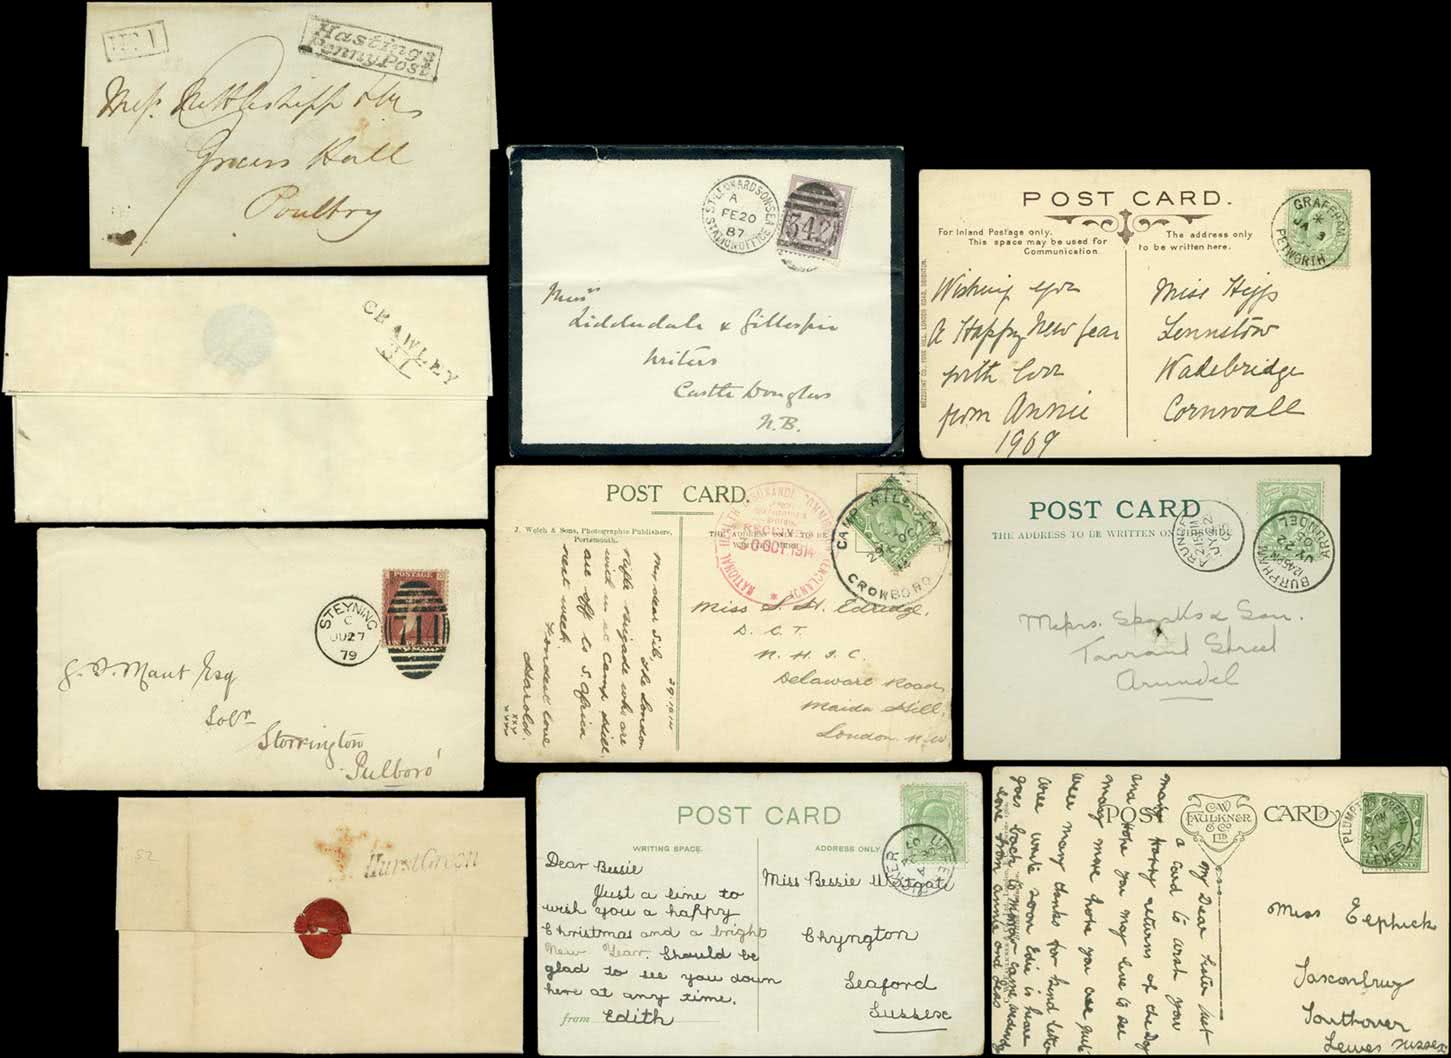 No 1
Hastings
Penny Post
Messrs Nettleshipp &
Grocers Hall
Poultry
CRAWLEY
STEYNING
C
JU 27
79
POSTAGE
711
Esq
Solr
Storrington
Pulboro'
52
Hurst Green
ST LEONARDS ON SEA
STATION OFFICE
A
FE 20
87
342
Messrs
Lidderdale & Gillespie
Writers
Castle Douglas
N.B.
POST CARD.
For Inland Postage only.
This space may be used for
Communication.
The address only
to be written here.
GRAFFHAM
*
JA 3
PETWORTH
Wishing you
A Happy New Year
with love
from Annie
1909
Miss Hipps
Wadebridge
Cornwall
POST CARD.
J. Welch & Sons, Photographic Publishers,
Portsmouth.
THE ADDRESS TO BE
NATIONAL HEALTH INSURANCE COMMISSION (ENGLAND)
RECEIVED
30 OCT 1914
CAMP HILL CAMP
OC
CROWBORO
29.10.14
My dear Sib,
The London
rifle brigade who are
with us at Camp Hill,
are off to S. Africa
next week.
Fondest love
Harold.
Miss S. H. Edridge,
D. C. T.
N. H. I. C.
Delaware Road,
Maida Hill,
London N.W.
POST CARD
THE ADDRESS TO BE WRITTEN ON THIS SIDE
ARUNDEL
JY 22
BURPHAM
12.45PM
JY 22
05
ARUNDEL
Messrs. Sparks & Son.
Tarrant Street
Arundel
POST CARD
WRITING SPACE.
ADDRESS ONLY
Dear Bessie
Just a line to
wish you a happy
Christmas and a bright
New Year. Should be
glad to see you down
here at any time.
from Edith
Miss Bessie Westgate
Chyngton
Seaford
Sussex
POST CARD
C.W.
FAULKNER
& CO
LTD.
PLUMPTON GREEN
LEWES
My Dear Sister Just
a card to wish you
many Happy returns of the Day
and Hope you may live to see
many more hope you are quite
well many thanks for kind letter
will write soon Edie is here
goes back
love from Annie and Les
Miss E Elphick
Southover
Lewes Sussex